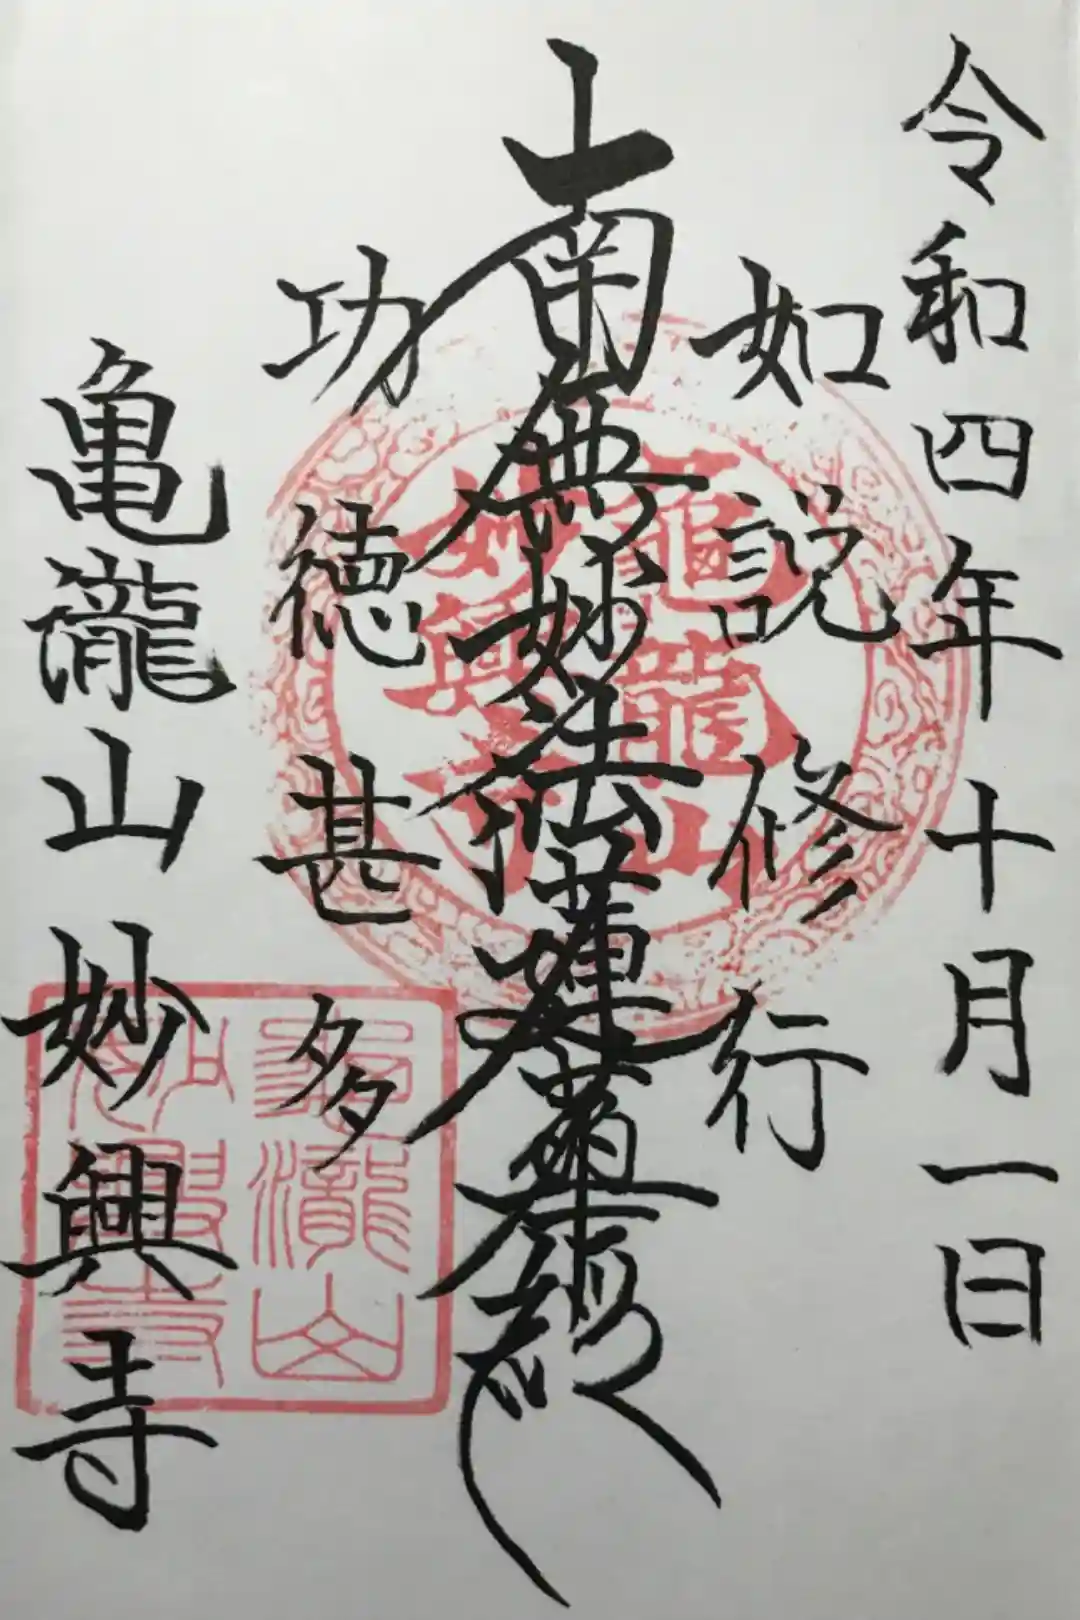 令和四年十月一日
如説修行
南無妙法蓮華経
功徳甚多
亀瀧山妙興寺
亀龍山
妙興寺
亀瀧山
妙興寺